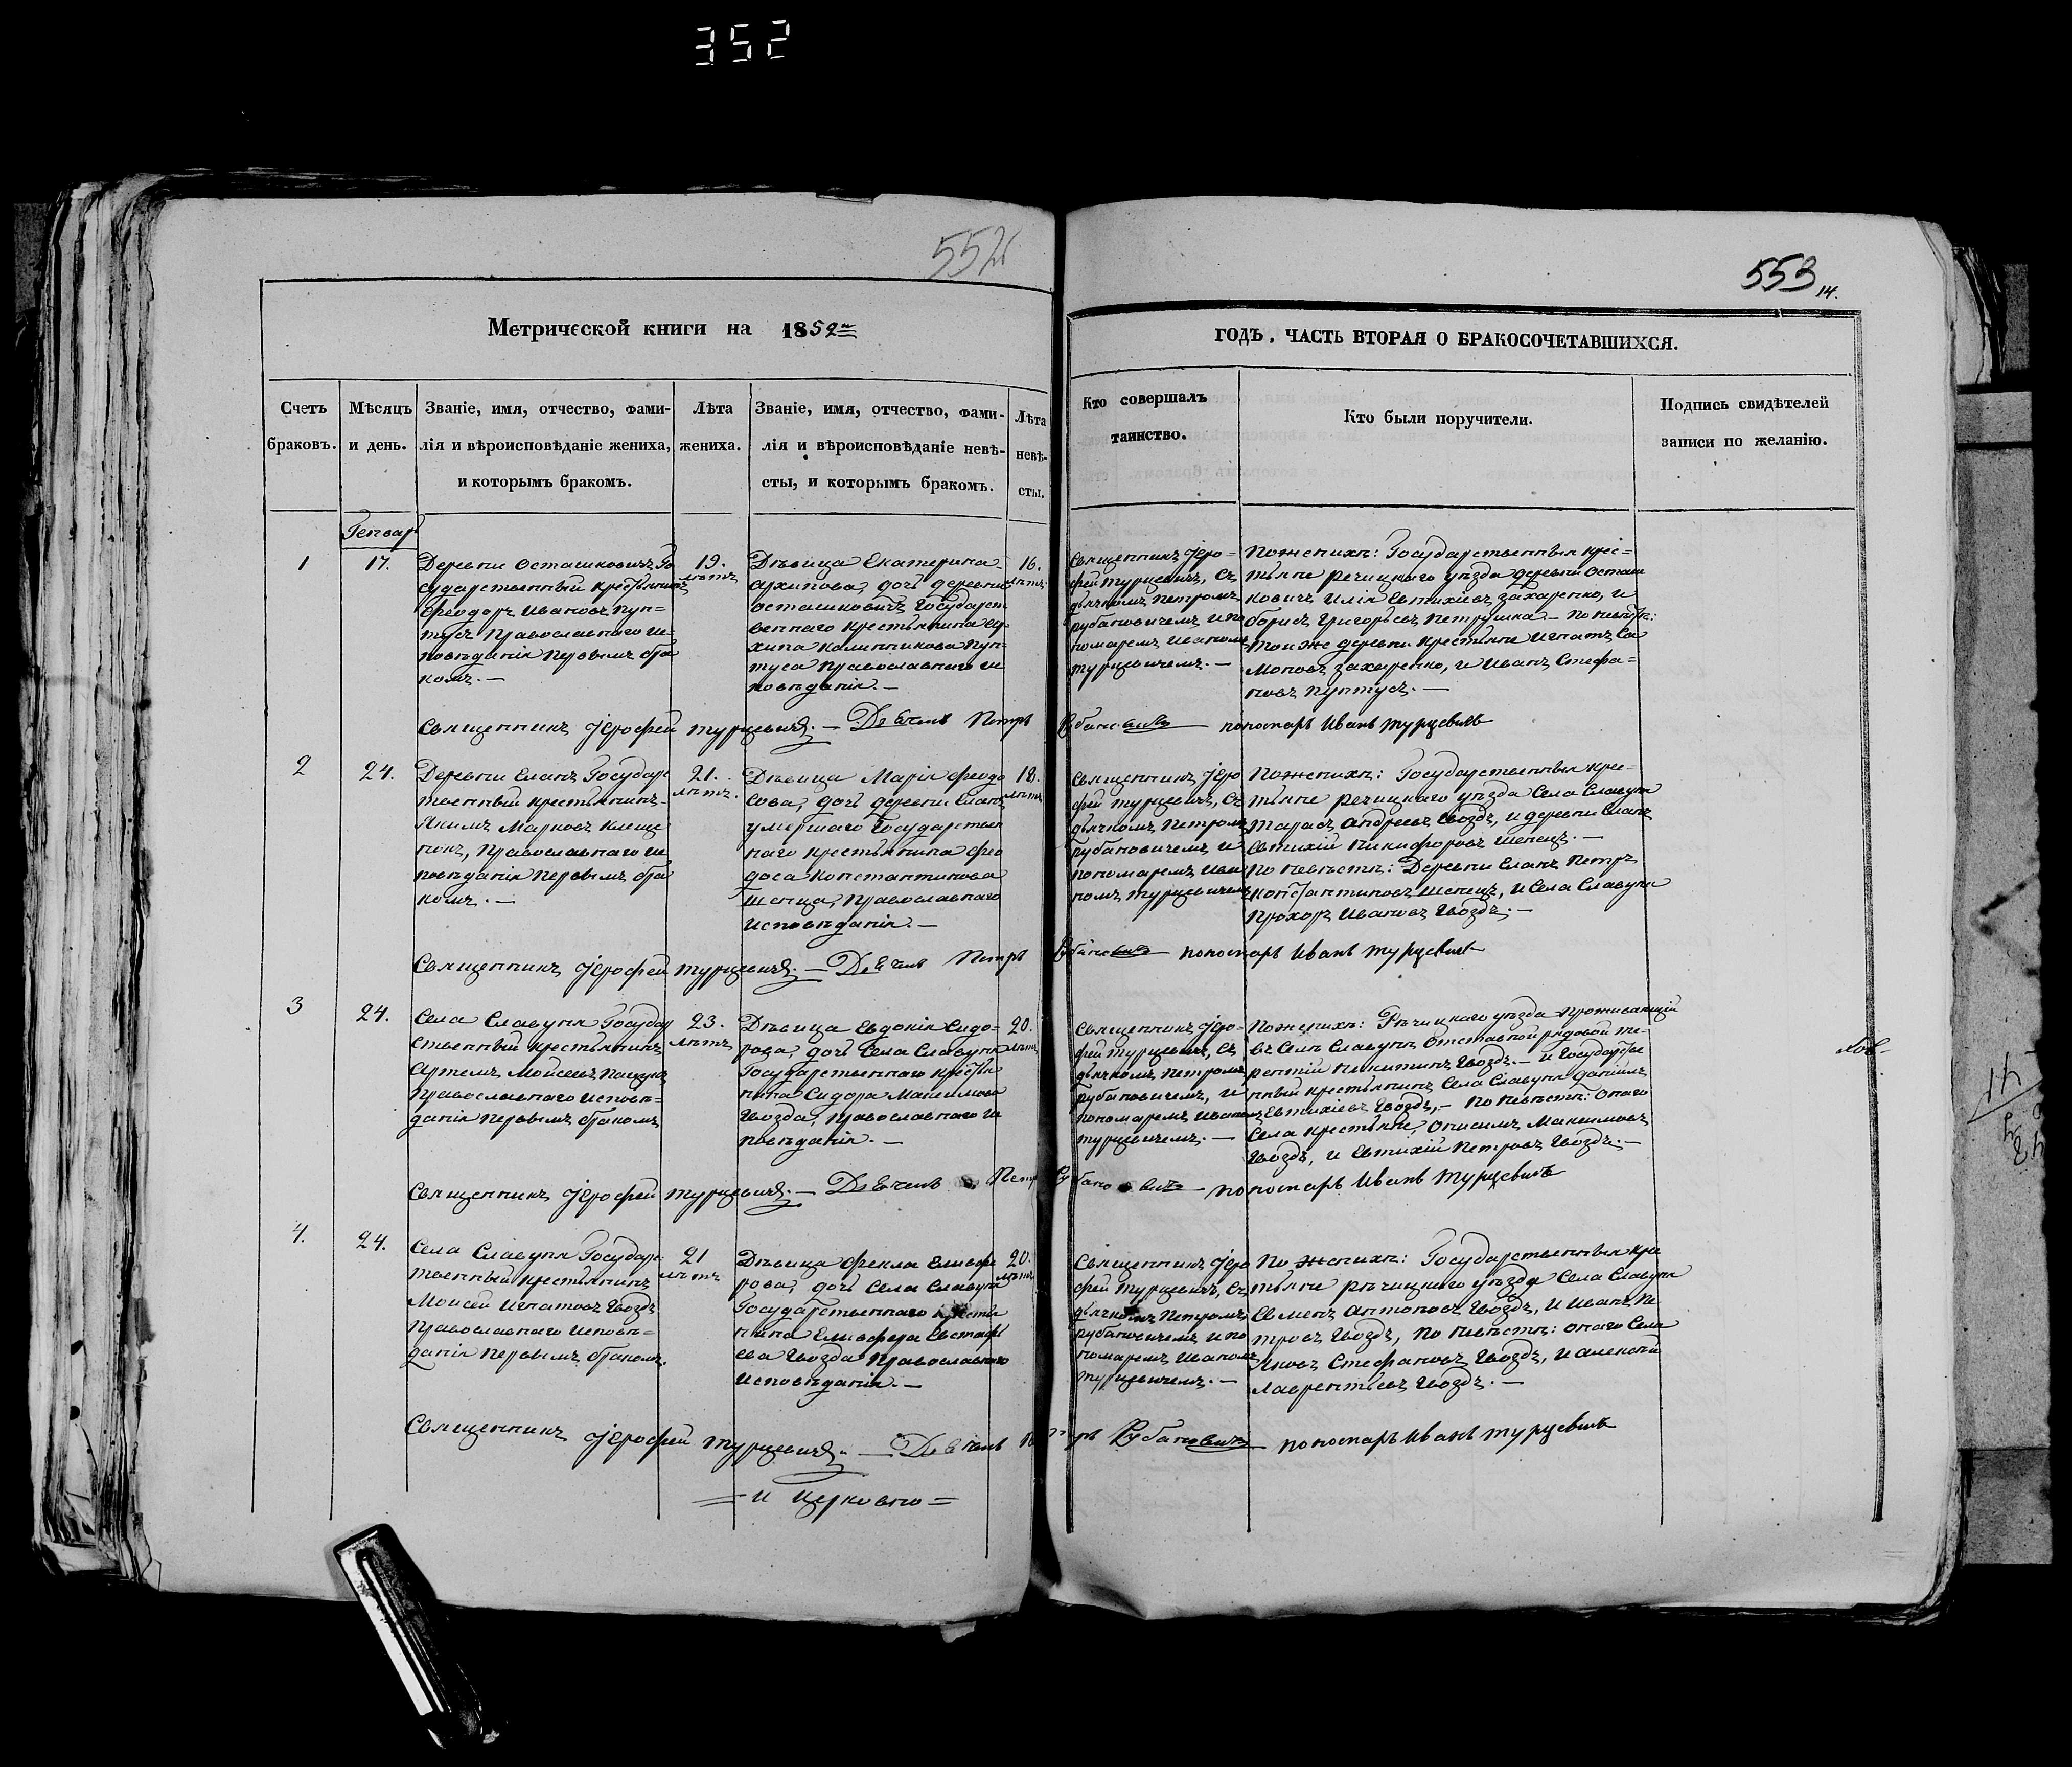 352
552
553
14.
Метрической книги на 1852
ГОДЪ. ЧАСТЬ ВТОРАЯ О БРАКОСОЧЕТАВШИХСЯ.
Счетъ
браковъ.
Мѣсяцъ
и день.
Званіе, имя, отчество, фами-
лія и вѣроисповѣданіе жениха,
и которымъ бракомъ.
Лѣта
жениха.
Званіе, имя, отчество, фами-
лія и вѣроисповѣданіе невѣ-
сты, и которымъ бракомъ.
Лѣта
невѣ-
сты.
Кто совершалъ
таинство.
Кто были поручители.
Подпись свидѣтелей
записи по желанію.
Генвар
1
17.
Деревни Осташковичъ Го
сударственный крестьянинъ
Феодоръ Ивановъ Пун-
тусъ Православнаго и-
повѣданія первымъ бра
комъ. —
19.
лѣтъ
Дѣвица Екатерина
Архипова, дочь деревни
Осташковичъ Государст
веннаго крестьянина Ар
хипа Калинникова Пун-
туса Православнаго и
повѣданія. —
16.
лѣтъ
Священникъ Іеро-
фей Турцевичъ, съ
дьячкомъ Петромъ
Рубановичемъ и по
номаремъ Иваномъ
Турцевичемъ. —
По женихѣ: Государственныя крес-
тьяне речицкаго уѣзда деревни Осташ
ковичъ Илія Евтихіевъ Захаренко, и
Борисъ Григорьевъ Петрушка. — По невѣстѣ:
Тои же деревни крестьяне Игнатъ Са
моновъ Захаренко, и Иванъ Стефа-
новъ Пунтусъ. —
Священникъ Іерофей Турцевичъ. — Дьячекъ Петръ Рубановичъ пономарь Иванъ Турцевичъ
2
24.
Деревни Еланъ Государ
твенный крестьянинъ
Якимъ Марковъ Клеще
нокъ, Православнаго и
повѣданія первымъ бра
комъ. —
21.
лѣтъ.
Дѣвица Марія Феодо
сова, дочь деревни Еланъ
умершаго Государствен
наго крестьянина Фео
доса Константинова
Шенца, Православнаго
исповѣданія. —
18.
лѣтъ
Священникъ Іеро
фей Турцевичъ, съ
дьячкомъ Петромъ
Рубановичемъ и
пономаремъ Ива
номъ Турцевичемъ
По женихѣ: Государственныя крес-
тьяне речицкаго уѣзда Села Славуня
Тарасъ Андреевъ Гвоздь, и деревни Еланъ
Евтихій Никифоровъ Шенецъ. —
По невѣстѣ: Деревни Еланъ Петръ
Константиновъ Шенецъ, и Села Славуня
Прохоръ Ивановъ Гвоздь. —
Священникъ Іерофей Турцевичъ. — Дьячекъ Петръ Рубановичъ пономарь Иванъ Турцевичъ
3
24.
Села Славуня Государ
ственный крестьянинъ
Артемъ Моисеевъ
Православнаго исповѣ-
данія первымъ бракомъ
23.
лѣтъ
Дѣвица Евдокія Сидо-
рова, дочь Села Славуня
Государственнаго крестья
нина Сидора Максимова
Гвозда, Православнаго и
повѣданія. —
20.
лѣтъ
Священникъ Іеро-
фей Турцевичъ, съ
дьячкомъ Петромъ
Рубановичемъ, и
пономаремъ Иваном
Турцевичемъ. —
По женихѣ: Рѣчицкаго уѣзда проживающій
въ Селѣ Славунѣ Отставной рядовой Те-
рентій Никитинъ Гвоздь. — и Государстве
нный крестьянинъ Села Славуня Даніилъ
Евтихіевъ Гвоздь, — По невѣстѣ: Онаго
Села крестьяне, Онисимъ Максимовъ
Гвоздь, и Евтихій Петровъ Гвоздь. —
Священникъ Іерофей Турцевичъ. — Дьячекъ Петръ Рубановичъ пономарь Иванъ Турцевичъ
4.
24.
Села Славуня Государ
твенный крестьянинъ
Моисей Игнатовъ Гвоздь
Православнаго исповѣ-
данія первымъ бракомъ.
21
лѣтъ
Дѣвица Фекла Елисфе
рова, дочь Села Славуня
Государственнаго крестья
нина Елисфера Евстафі
ева Гвозда Православнаго
исповѣданія. —
20.
лѣтъ
Священникъ Іеро
фей Турцевичъ, съ
дьячкомъ Петромъ
Рубановичемъ и по
номаремъ Иваномъ
Турцевичемъ. —
По женихѣ: Государственныя кре
тьяне рѣчицкаго уѣзда Села Славуня
Семенъ Антоновъ Гвоздь, и Иванъ Пе
тровъ Гвоздь, По невѣстѣ: онаго Села
Яковъ Стефановъ Гвоздь, и Алексѣй
Лаврентьевъ Гвоздь. —
Священникъ Іерофей Турцевичъ. — Дьячекъ Петръ Рубановичъ пономарь Иванъ Турцевичъ
= и церковно =